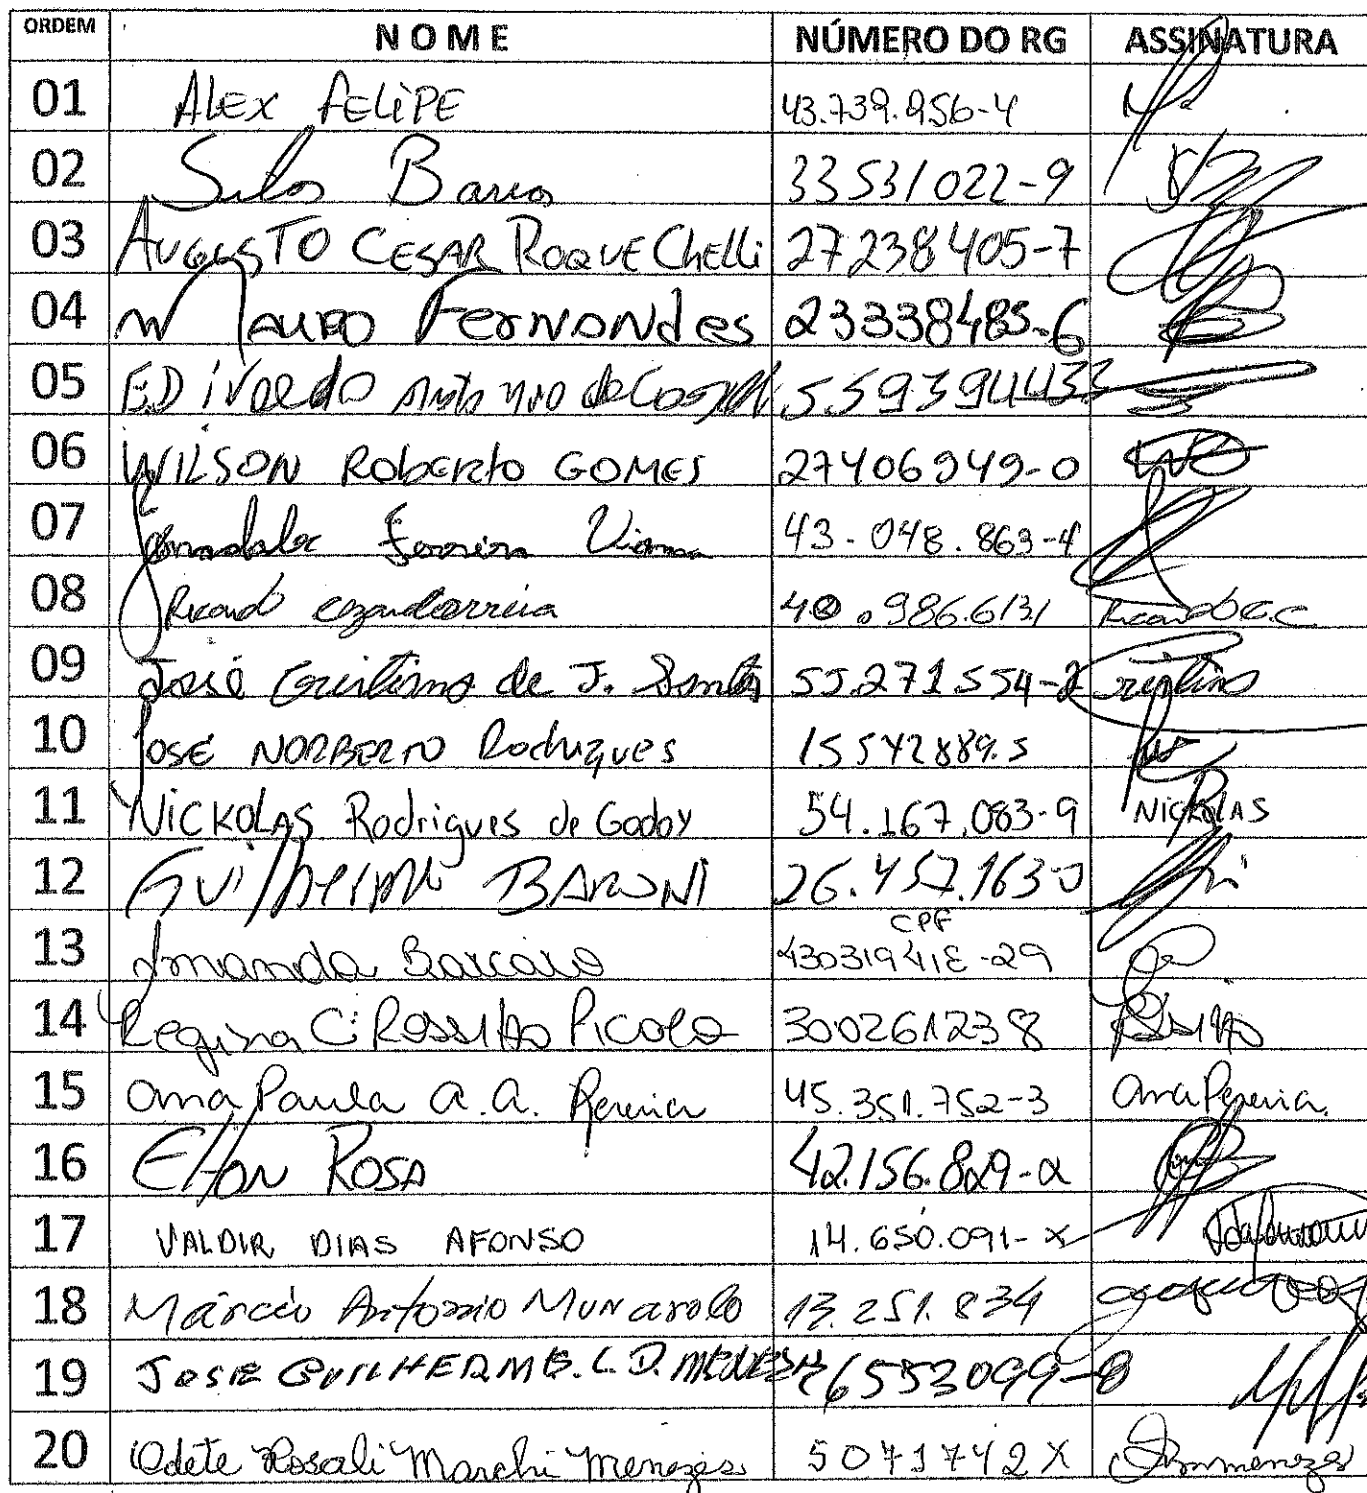 ORDEM NOME NÚMERO DO RG ASSINATURA
01 ALEX FELIPE 43.739.956-4
02 Barros 33531022-9
03 AUGUSTO CESAR ROQUE Chelli 27238405-7
04 MAURO Fernandes 23338485-6
05 EDivaldo 559394433
06 WILSON ROBERTO GOMES 27406949-0
07 Ferreira Viana 43-048.863-4
08 Ricardo 40.986.6131 Ricardo C.C
09 José Cristiano de J. Santos 55.271554-2 Cristino
10 JOSÉ NORBERTO Rodrigues 15542889.5
11 NICKOLAS Rodrigues de Godoy 54.167.083-9 NICKOLAS
12 GUilherme BARONI 26.457.163-0
CPF
13 Amanda 430319418-29
14 Regina C. Rossitto Picolo 300261238 Rossitto
15 Ana Paula A. A. Pereira 45.351.752-3 Ana Pereira
16 Elton ROSA 42.156.829-2
17 VALDIR DIAS AFONSO 14.650.091-X
18 Márcio Antonio Munarolo 13.251.834
19 JOSE GUILHERME. L. D. 46553099-8
20 Odete Rosali Marchi Menezes 5071742X